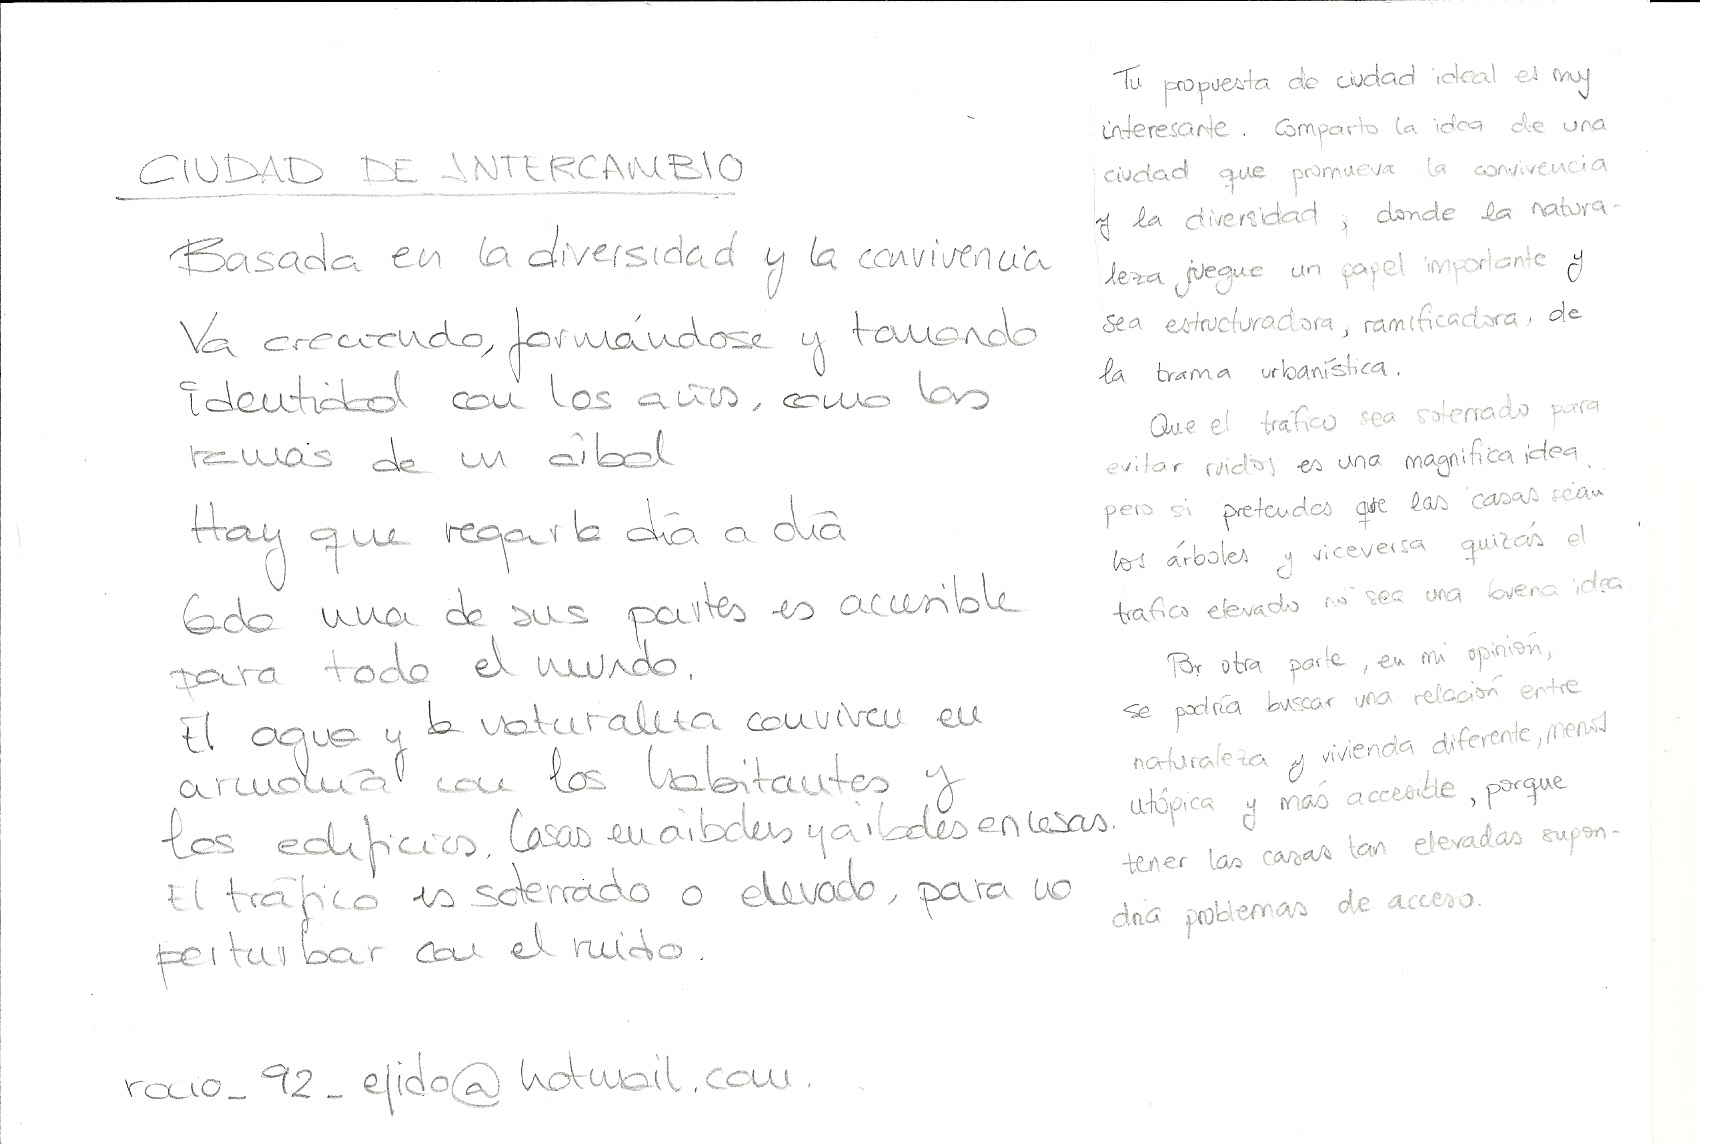 CIUDAD DE INTERCAMBIO
Basada en la diversidad y la convivencia
Va creciendo, formándose y tomando
identidad con los años, como las
ramas de un árbol
Hay que regarla día a día
Cada una de sus partes es accesible
para todo el mundo.
El agua y la naturaleza conviven en
armonía con los habitantes y
los edificios. Casas en árboles y árboles en casas.
El tráfico es soterrado o elevado, para no
perturbar con el ruido.
rocio_92_ejido@hotmail.com.
Tu propuesta de ciudad ideal es muy
interesante. Comparto la idea de una
ciudad que promueva la convivencia
y la diversidad; donde la natura-
leza juegue un papel importante y
sea estructuradora, ramificadora, de
la trama urbanística.
Que el tráfico sea soterrado para
evitar ruidos es una magnifica idea
pero si pretendes que las casas sean
los árboles y viceversa quizás el
trafico elevado no sea una buena idea
Por otra parte, en mi opinión,
se podría buscar una relación entre
naturaleza y vivienda diferente, menos
utópica y más accesible, porque
tener las casas tan elevadas supon-
dría problemas de acceso.